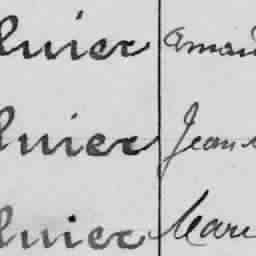 lnier Aman
lnier Jean
lnier Mari